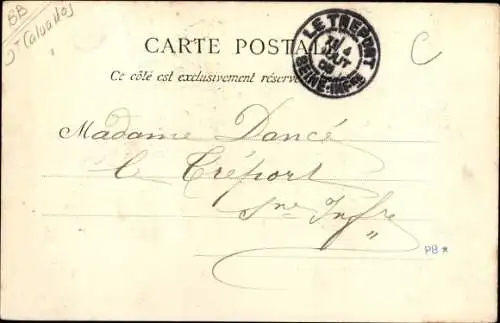 BB
(Calvados)
CARTE POSTALE
Ce côté est exclusivement réservé
LE TREPORT
4
AOUT
SEINE-INFRE
C
Madame Dancé
Le Tréport
Sne Infre
"
PB *